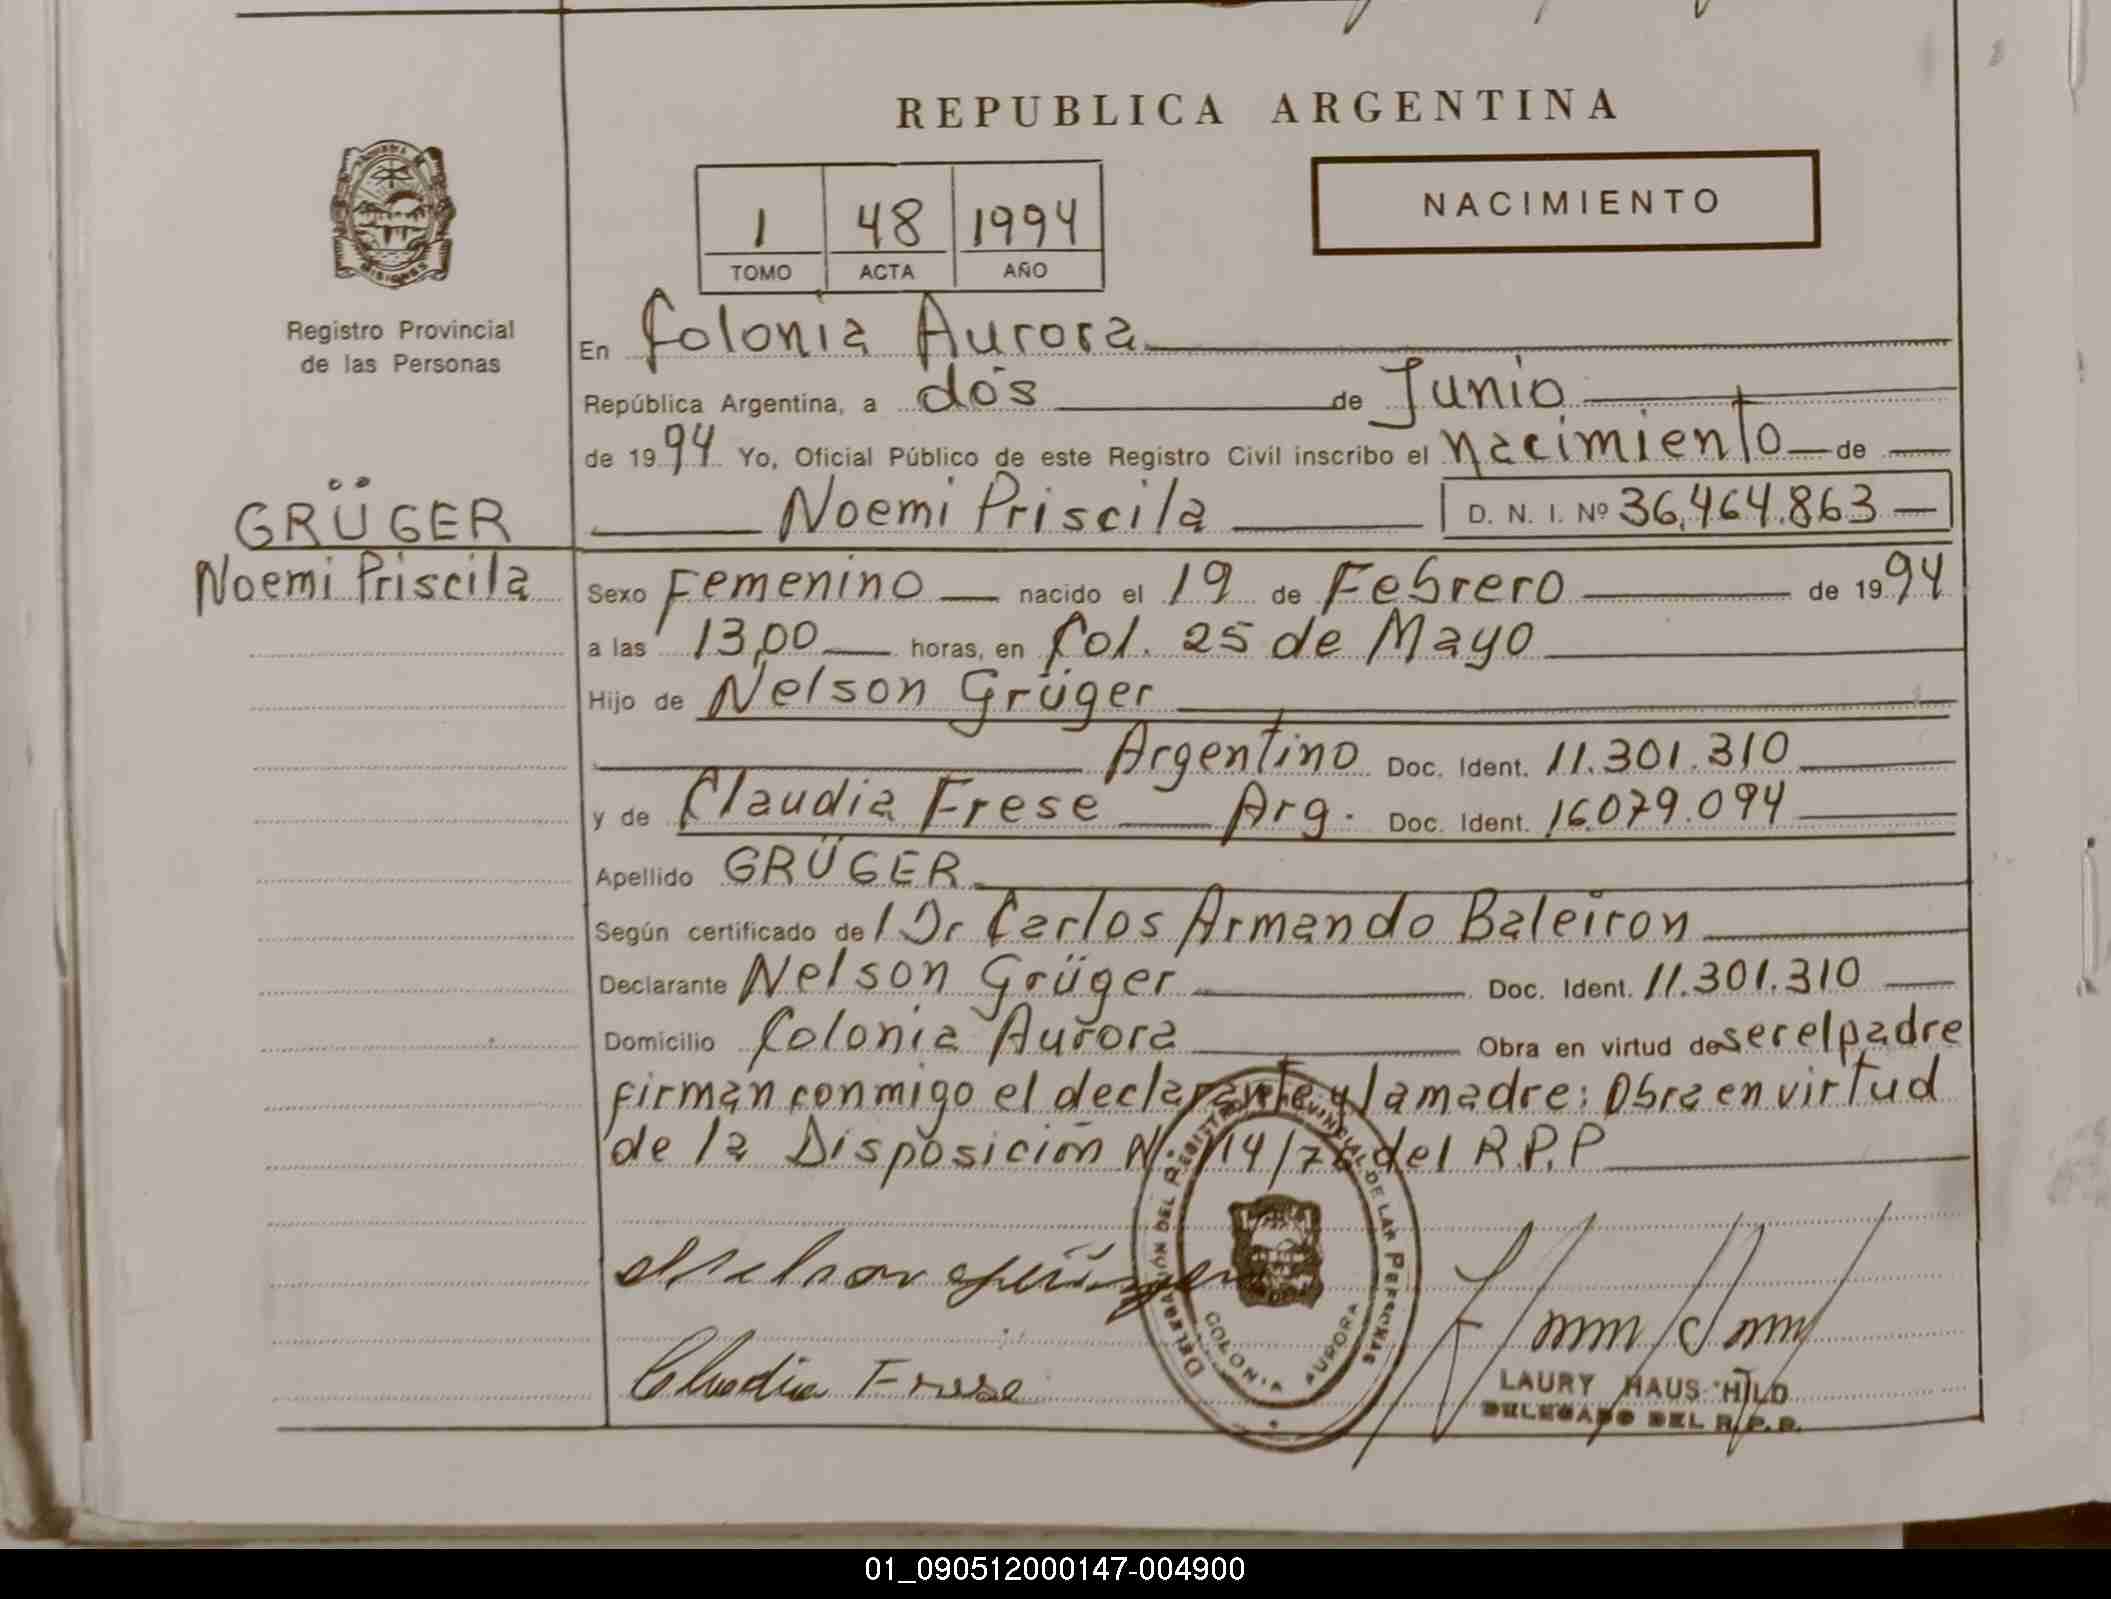 REPUBLICA ARGENTINA
NACIMIENTO
1 48 1994
TOMO ACTA AÑO
Registro Provincial
de las Personas
GRÜGER
Noemi Priscila
En Colonia Aurora
República Argentina, a dos de Junio
de 1994 Yo, Oficial Público de este Registro Civil inscribo el nacimiento de
Noemi Priscila D. N. I. Nº 36.464.863
Sexo Femenino nacido el 19 de Febrero de 1994
a las 13,00 horas, en Col. 25 de Mayo
Hijo de Nelson Grüger
Argentino Doc. Ident. 11.301.310
y de Claudia Frese Arg. Doc. Ident. 16.079.094
Apellido GRÜGER
Según certificado de l Dr Carlos Armando Baleiron
Declarante Nelson Grüger Doc. Ident. 11.301.310
Domicilio Colonia Aurora Obra en virtud de ser el padre
firman conmigo el declarante y la madre: Obra en virtud
de la Disposición Nº 114/76 del R.P.P
DELEGACIÓN DEL REGISTRO PROVINCIAL DE LAS PERSONAS
COLONIA AURORA
Nelson Grüger
Claudia Frese
LAURY HAUS HILD
DELEGADO DEL R.P.P.
01_090512000147-004900